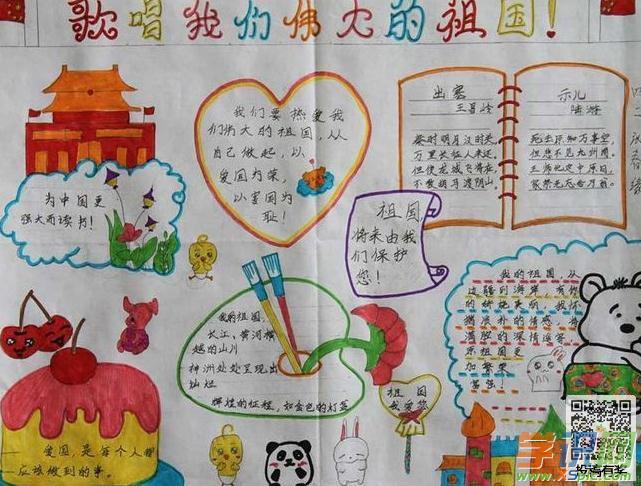 歌唱我们伟大的祖国!
我们要热爱我
们伟大的祖国,从
自己做起,以
爱国为荣,
以害国为
耻!
出塞
王昌龄
秦时明月汉时关
万里长征人未还,
但使龙城飞将在,
不教胡马渡阴山
示儿
陆游
死去原知万事空,
但悲不见九州同,
王师北定中原日,
家祭无忘告乃翁。
为中国更
强大而读书!
祖国
将来由我
们保护
您!
我的祖国,从
边疆到海岸
我的祖国,
长江、黄河横
越的山川
神洲处处呈现出
灿烂
辉煌的征程,如金色的灯盏
祖国
我爱您
爱国,是每个人都
应该做到的事。
祝祖国更
加繁荣
富强!
投稿有奖